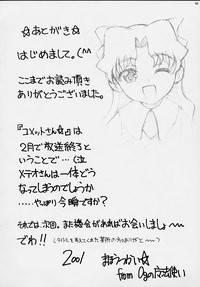 ☆あとがき☆
はじめまして。(^^
ここまでお読み頂き
ありがとうございました。
『コメットさん☆』は
2月で放送終了と
いうことで…(泣
メテオさんは一体どう
なってしまうのでしょうか
……やっぱり今晩ですか?
それでは、次回、また機会があればお会いしましょ〜
でわ!!
2001
まほうつかい☆
from Ogの魔法使い